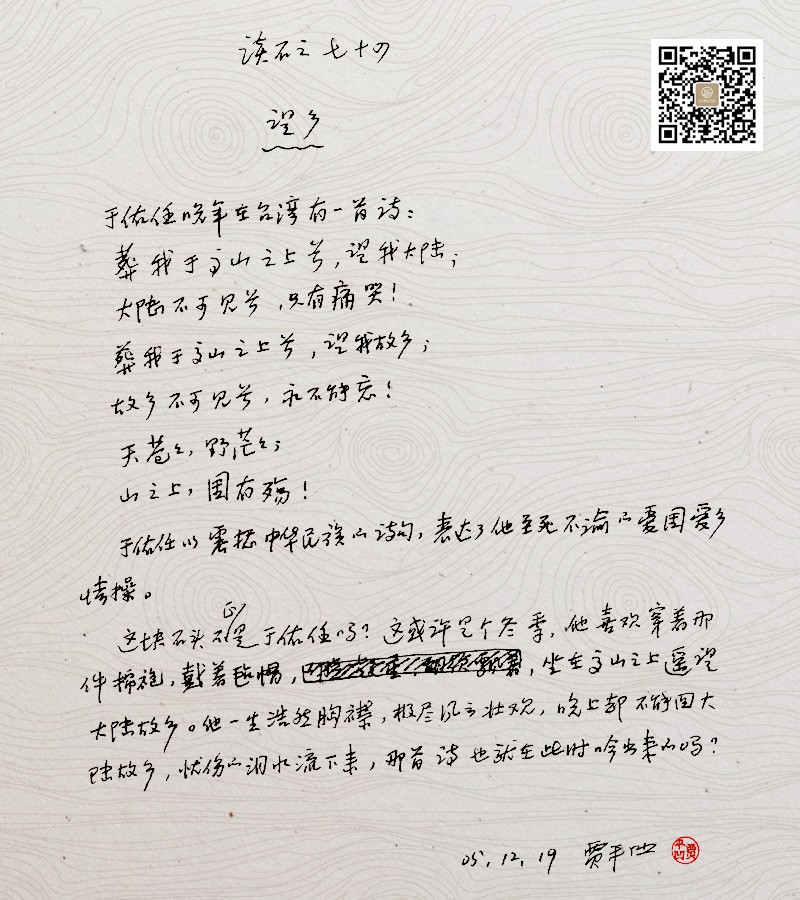 读石之七十四
望乡
于佑任晚年在台湾有一首诗：
葬我于高山之上兮，望我大陆；
大陆不可见兮，只有痛哭！
葬我于高山之上兮，望我故乡；
故乡不可见兮，永不能忘！
天苍々，野茫々；
山之上，国有殇！
于佑任以震撼中华民族的诗句，表达了他至死不渝的爱国爱乡
情操。
这块石头不正是于佑任吗？这或许是个冬季，他喜欢穿着那
件棉袍，戴着毡帽，坐在高山之上遥望
大陆故乡。他一生浩然胸襟，极尽风云壮观，晚上却不能回大
陆故乡，忧伤的泪水流下来，那首诗也就在此时吟出来的吗？
05.12.19 贾平凹